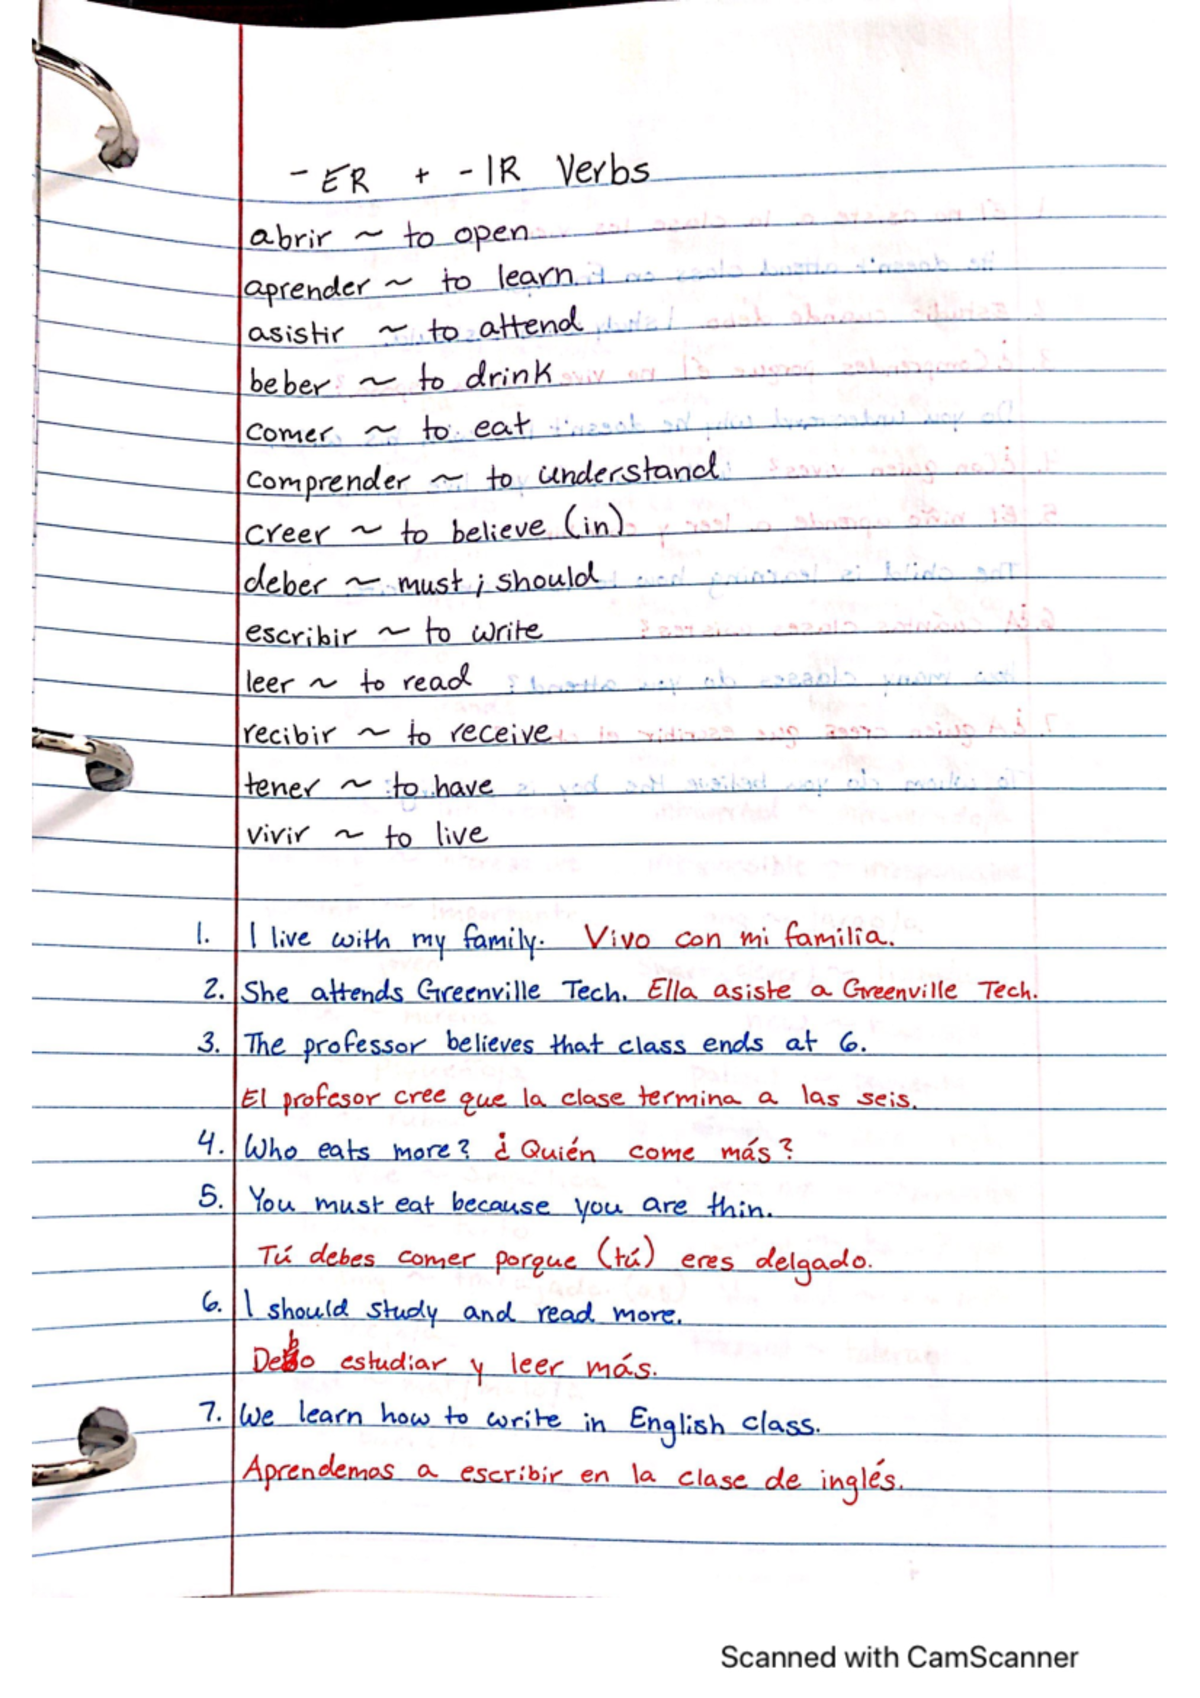 -ER + -IR Verbs
abrir ~ to open
aprender ~ to learn
asistir ~ to attend
beber ~ to drink
comer ~ to eat
comprender ~ to understand
creer ~ to believe (in)
deber ~ must; should
escribir ~ to write
leer ~ to read
recibir ~ to receive
tener ~ to have
vivir ~ to live
1. I live with my family. Vivo con mi familia.
2. She attends Greenville Tech. Ella asiste a Greenville Tech.
3. The professor believes that class ends at 6.
El profesor cree que la clase termina a las seis.
4. Who eats more? ¿Quién come más?
5. You must eat because you are thin.
Tú debes comer porque (tú) eres delgado.
6. I should study and read more.
Debo estudiar y leer más.
7. We learn how to write in English class.
Aprendemos a escribir en la clase de inglés.
Scanned with CamScanner